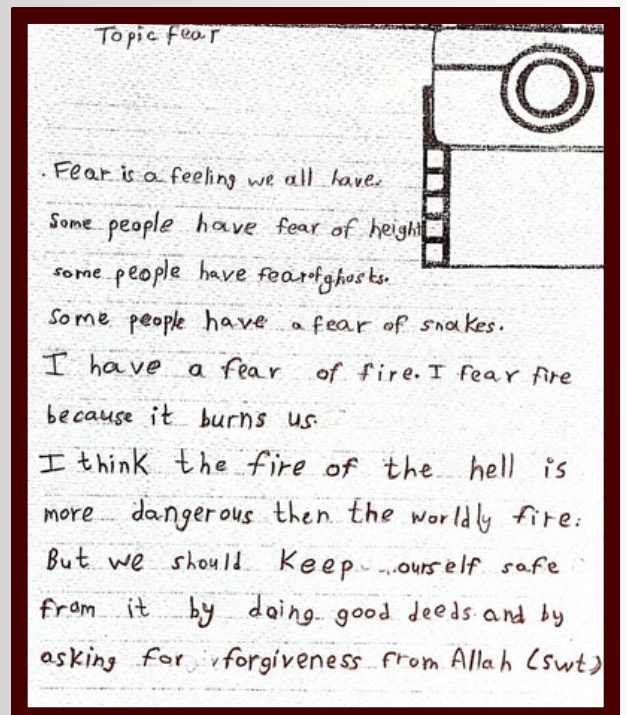 Topic fear
. Fear is a feeling we all have.
Some people have fear of height
some people have fear of ghosts.
Some people have a fear of snakes.
I have a fear of fire. I fear fire
because it burns us.
I think the fire of the hell is
more dangerous then the worldly fire.
But we should keep ourself safe
from it by doing good deeds and by
asking for forgiveness from Allah (swt)